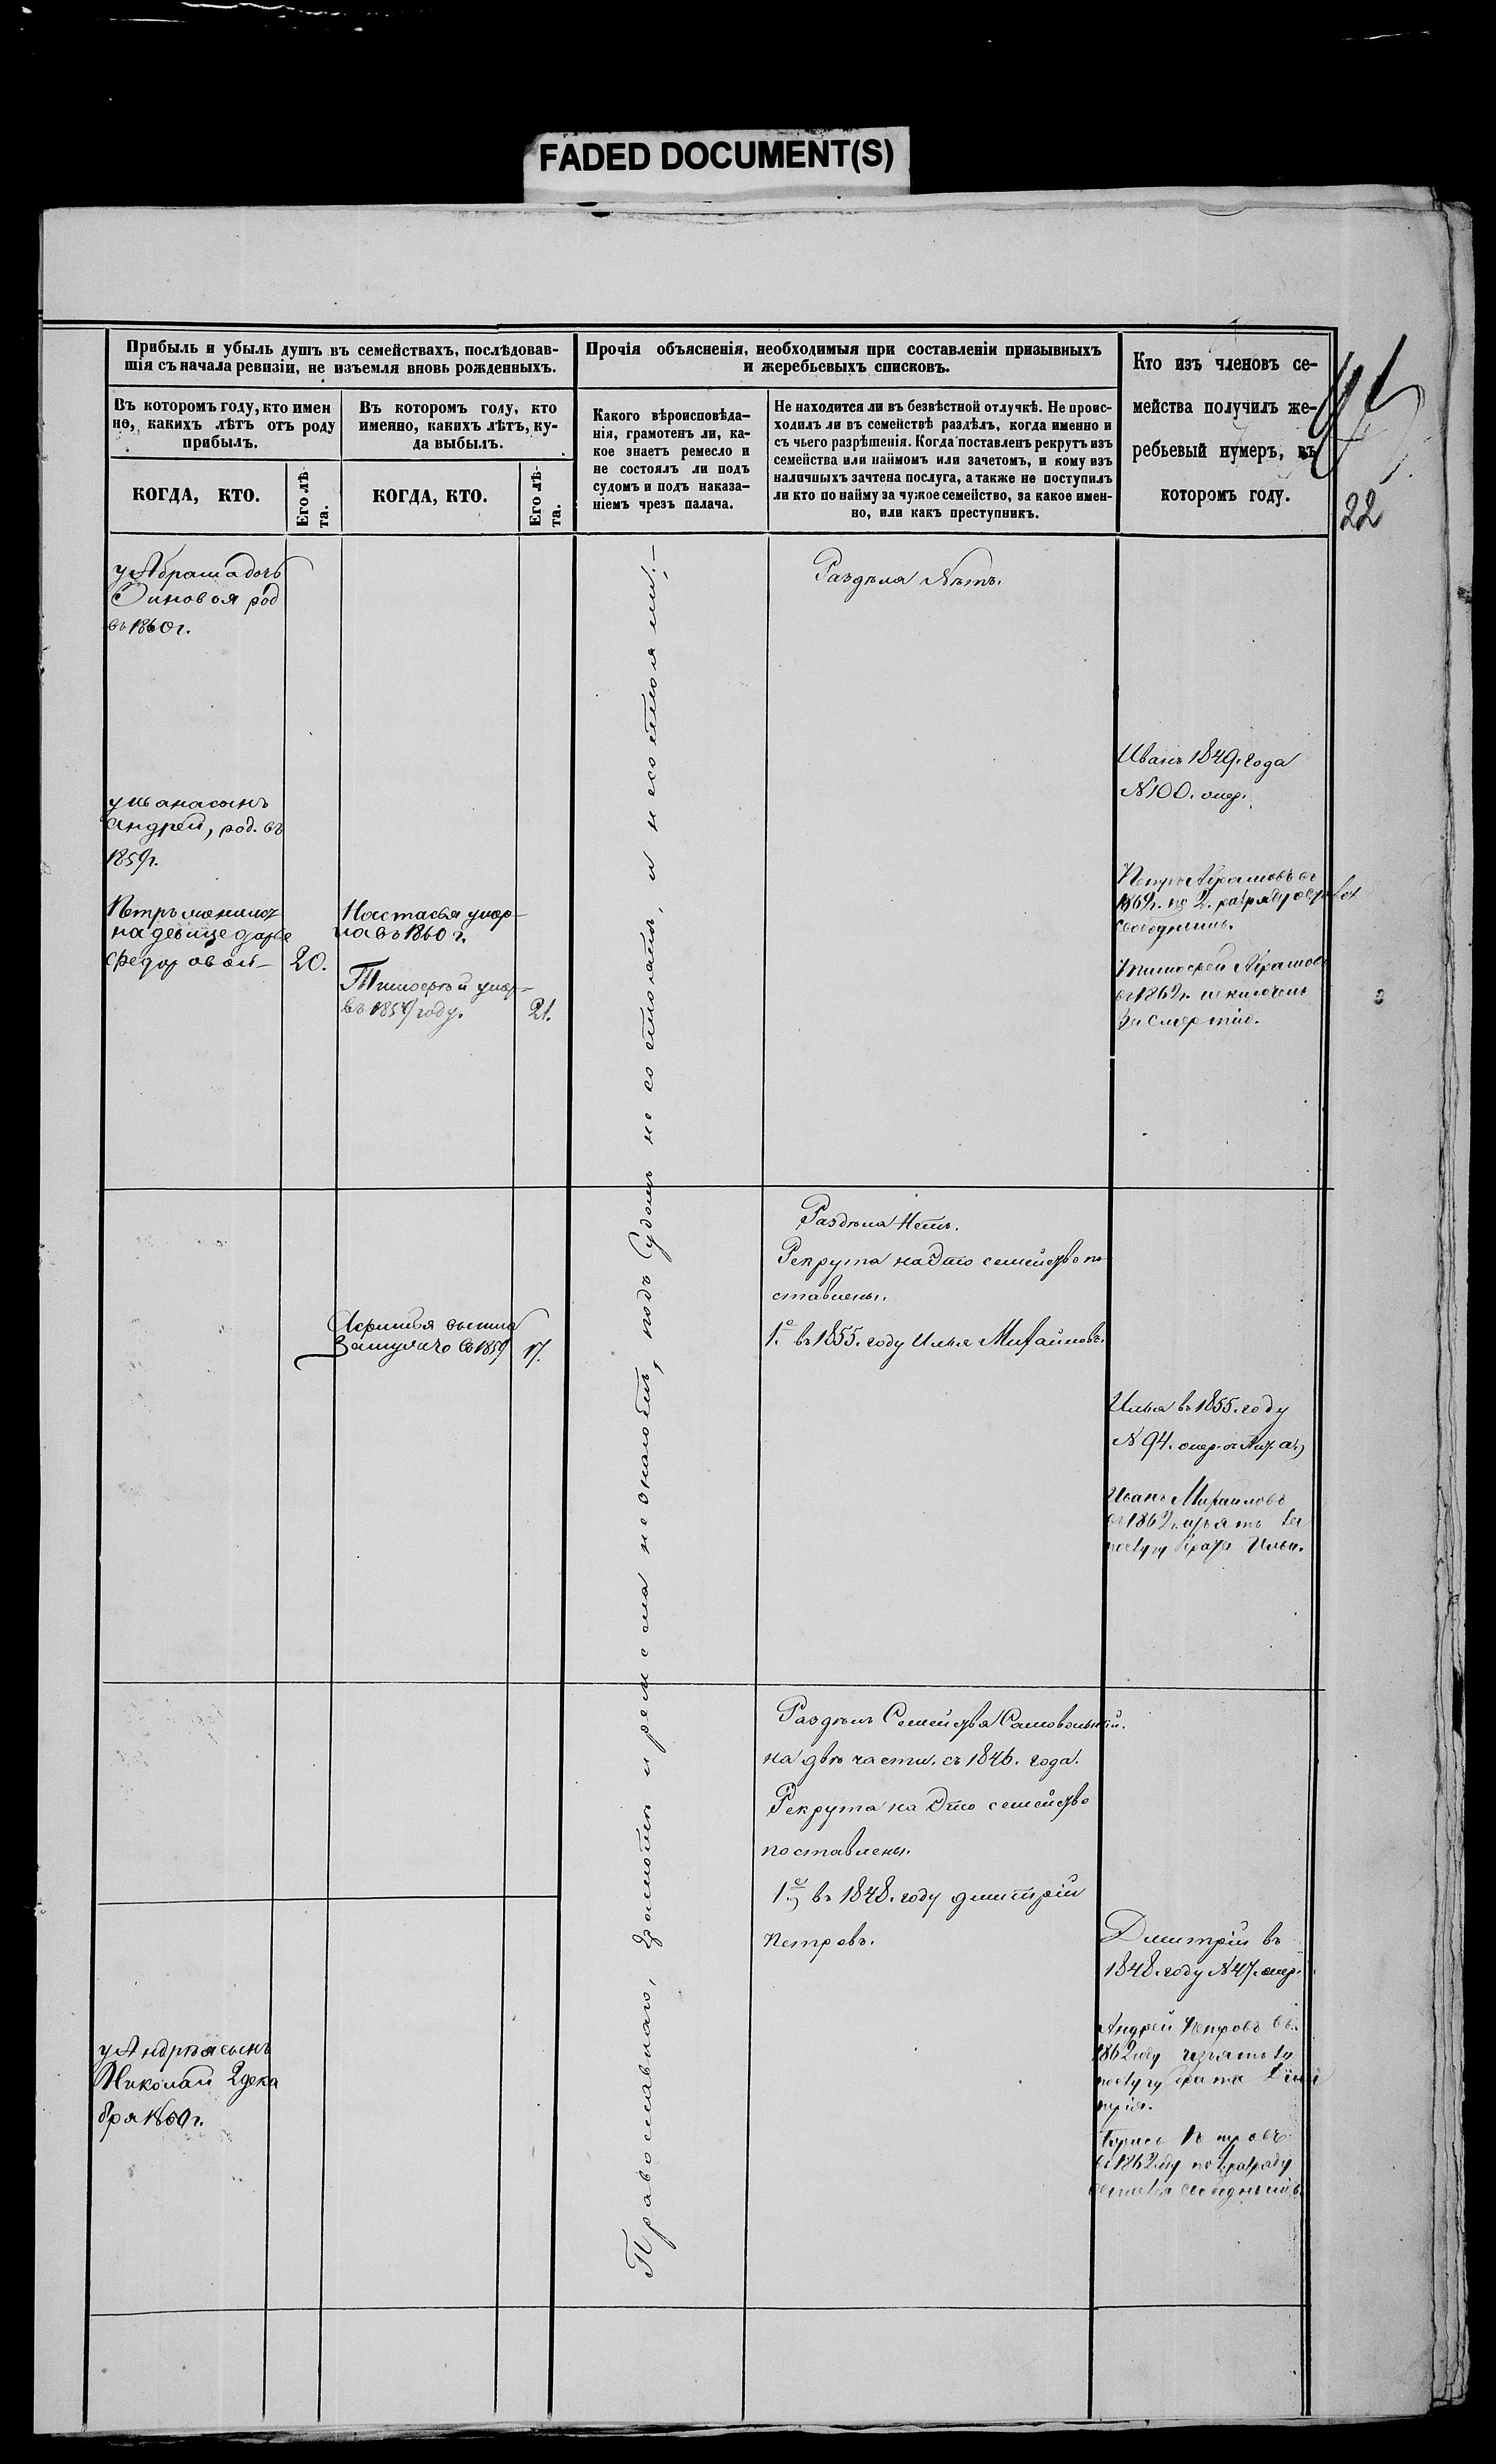 FADED DOCUMENT(S)
Прибыль и убыль душъ въ семействахъ, послѣдовав-
шія съ начала ревизіи, не изъемля вновь рожденныхъ.
Прочія объясненія, необходимыя при составленіи призывныхъ
и жеребьевыхъ списковъ.
Кто изъ членовъ се-
мейства получилъ же-
ребьевый нумеръ, въ
которомъ году.
Въ которомъ году, кто имен
но, какихъ лѣтъ отъ роду
прибылъ.
Въ которомъ году, кто
именно, какихъ лѣтъ, ку-
да выбылъ.
Какого вѣроисповѣда-
нія, грамотенъ ли, ка-
кое знаетъ ремесло и
не состоялъ ли подъ
судомъ и подъ наказа-
ніемъ чрезъ палача.
Не находится ли въ безвѣстной отлучкѣ. Не проис-
ходилъ ли въ семействѣ раздѣлъ, когда именно и
съ чьего разрѣшенія. Когда поставленъ рекрутъ изъ
семейства или наймомъ или зачетомъ, и кому изъ
наличныхъ зачтена послуга, а также не поступилъ
ли кто по найму за чужое семейство, за какое имен-
но, или какъ преступникъ.
КОГДА, КТО.
Его лѣ-
та.
КОГДА, КТО.
Его лѣ-
та.
22
у Абрама дочь
Зиновья род
въ 1860 г.
у Ивана сынъ
Андрей, род. въ
1859 г.
Петръ женился
на девице Дарье
Федоровой 20.
Настасья умер
ла въ 1860 г.
Тимофей умер
въ 1859 году. 21.
Православнаго, грамоты и ремесла не знаютъ, подъ Судомъ не состояли, и не состоя ли.
Раздѣла Нѣтъ.
Иванъ 1849. года
N 100. очер.
Петръ Абрамовъ въ
1862 г. по 2. разряду
свободнымъ.
Тимофей Абрамовъ
въ 1862 г. исключенъ
За Смертію.
Раздѣла Нетъ.
Рекрута на Это семейство по
ставлены.
1.е въ 1855. году Илья Михайловъ.
вышла
Замужъ въ 1859 17.
Илья въ 1855. году
N 94. очер.
Иванъ Михайловъ
въ 1862 г. изъятъ за
послугу брата Ильи.
Раздѣлъ Семейства Самовольный.
на двѣ части. съ 1846. года.
Рекрута на Это семейство
поставлены.
1.е въ 1848. году Дмитрій
Петровъ.
Дмитрій въ
1848. году N 47. очер.
у Андрѣя сынъ
Николай 2 дека
бря 1860 г.
Андрей Петровъ въ
1862 году изъятъ за
послугу брата Дми
трія.
Петровъ
въ 1862 году по разряду
свободнымъ